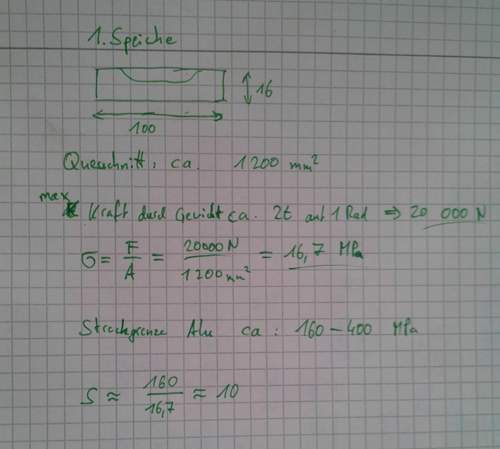 1. Speiche
16
100
Querschnitt: ca. 1200 mm²
max Kraft durch Gewicht ca. 2t auf 1 Rad ⇒ 20 000 N
σ = F/A = 20000 N / 1200 mm² = 16,7 MPa
Streckgrenze Alu ca: 160 – 400 MPa
S ≈ 160 / 16,7 ≈ 10